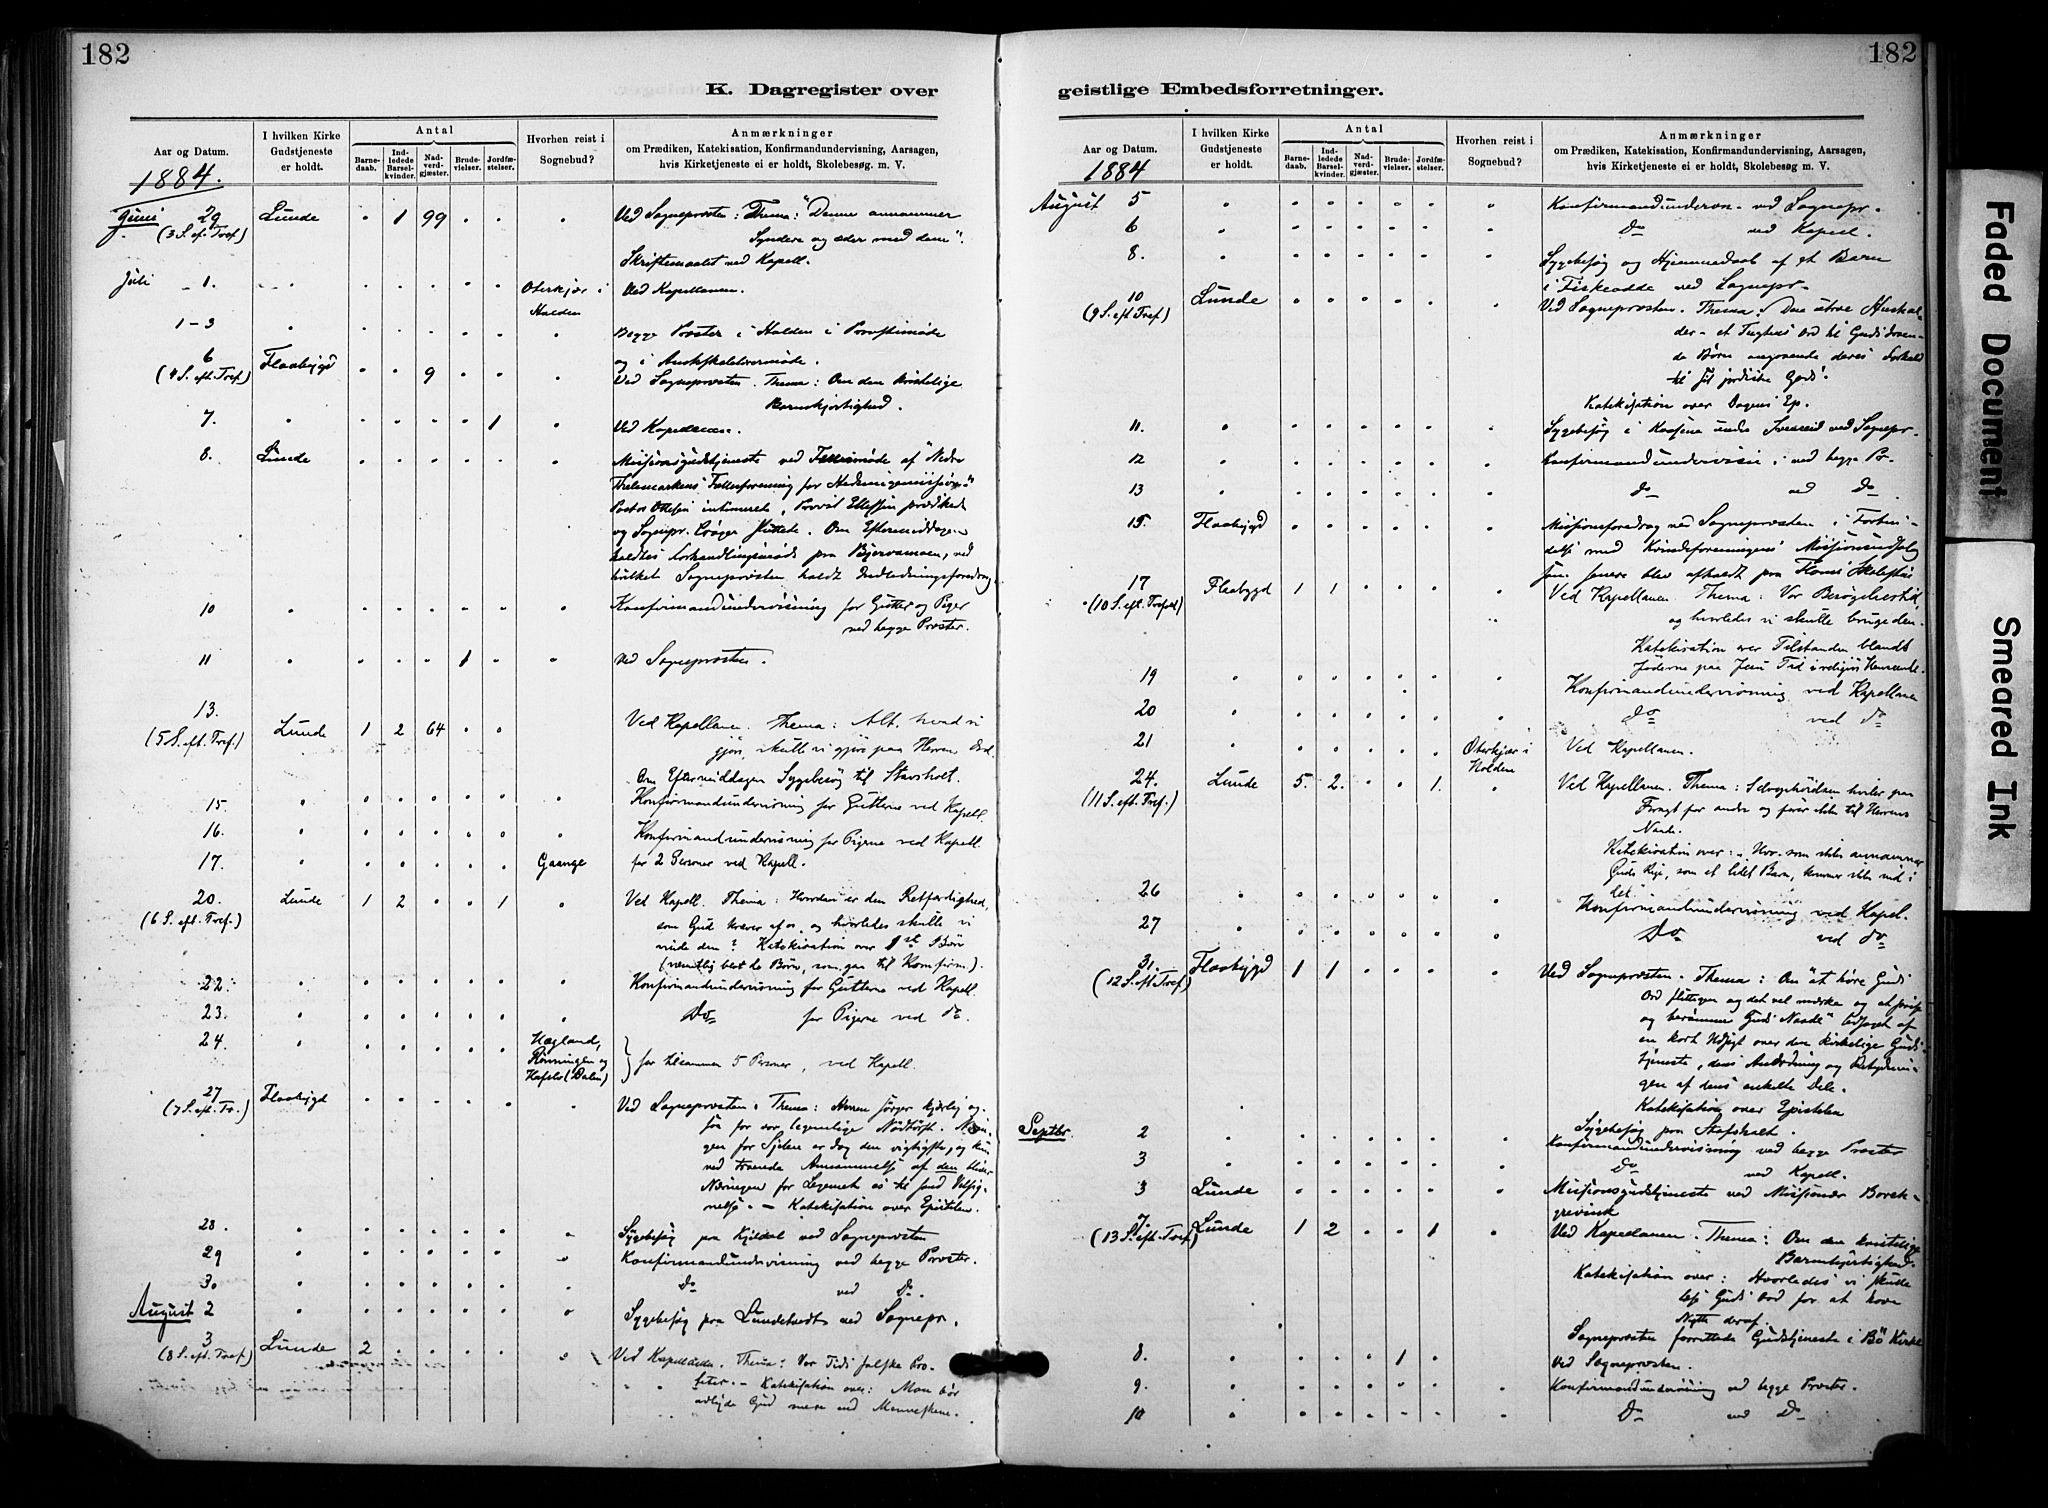 182
K. Dagregister over
Aar og Datum.
I hvilken Kirke Gudstjeneste er holdt.
Antal
Barnedaab.
Indledede Barselkvinder.
Nadverdgjæster.
Brudevielser.
Jordfæstelser.
Hvorhen reist i Sognebud?
Anmærkninger
om Prædiken, Katekisation, Konfirmandundervisning, Aarsagen,
hvis Kirketjeneste ei er holdt, Skolebesøg m. V.
1884.
Juni 29 Lunde 1 99 Ved Sogneprosten: Thema: "Denne annammer
(3 S. ef. Tref.) Syndere og æder med dem".
Skriftemaalet ved Kapell.
Juli 1. Oterkjær i Holden Ved Kapellanen.
1-3 Begge Prester i Holden i Provstimøde
og i
6 Flaabygd 9 Ved Sogneprosten. Thema: Om den kristelige
(4 S. eft. Tref.) Barmhjertighed.
7. 1 Ved Kapellanen.
8. Lunde Missionsgudstjeneste ved Fellesmøde af "Nedre
Thelemarkens Fællesforening for Hedningemissjon"
Pastor Ottesen intimerede, Provst Ellefsen prædikede
og Sognepr. Krøger sluttede. Om Eftermiddagen
holdtes Forhandlingsmøde paa Bjervamoen, ved
hvilket Sogneprosten holdt Indledningsforedrag.
10 Konfirmandundervisning for Gutter og Piger
ved begge Prester.
11 1 Ved Sogneprosten.
13. Lunde 1 2 64 Ved Kapellanen. Thema: Alt, hvad vi
(5 S. eft. Tref.) gjør, skulle vi gjøre paa Herrens Ord.
Om Eftermiddagen Sygebesøg til Stavsholt.
15. Konfirmandundervisning for Gutterne ved Kapell.
16. Konfirmandundervisning for Pigerne ved Kapell.
17. Gaange for 2 Personer ved Kapell.
20. Lunde 1 2 1 Ved Kapell. Thema: Hvordan er den Retfærdighed,
(6 S. eft. Tref.) som Gud kræver af os, og hvorledes skulle vi
vinde den? Katekisation over 1st Børn
(nemlig blot de Børn, som gaa til Konfirm.).
22. Konfirmandundervisning for Gutterne ved Kapell.
23. Do for Pigerne ved do.
24. Hægland, Rønningen og (Dalen) for tilsammen 5 Personer, ved Kapell.
27 Flaabygd Ved Sogneprosten. Thema: Herren sørger kjærlig og-
(7 S. eft. Tr.) saa for vor legemlige Nødtørft. Næringen
for Sjelen er dog den vigtigste, og kun
ved troende Annammelse af den bliver
Næringen for Legemet os til sand Velsig-
nelse. - Katekisation over Epistelen.
28. Sygebesøg paa Kjeldal ved Sogneprosten
29 Konfirmandundervisning ved begge Prester.
30 Do ved Do.
August 2 Sygebesøg paa Lundetvedt ved Sognepr.
3 Lunde 2 Ved Kapellanen. Thema: Vor Tids falske Pro-
(8 S. eft. Tref.) feter. - Katekisation over: Man bør
adlyde Gud mere end Menneskene.
182
geistlige Embedsforretninger.
Aar og Datum.
I hvilken Kirke Gudstjeneste er holdt.
Antal
Barnedaab.
Indledede Barselkvinder.
Nadverdgjæster.
Brudevielser.
Jordfæstelser.
Hvorhen reist i Sognebud?
Anmærkninger
om Prædiken, Katekisation, Konfirmandundervisning, Aarsagen,
hvis Kirketjeneste ei er holdt, Skolebesøg m. V.
1884
August 5 Konfirmandunderv. ved Sognepr.
6 Do ved Kapell.
8. Sygebesøg og Hjemmedaab af et Barn
i Fiskeodde ved Sognepr.
10 Lunde Ved Sogneprosten. Thema: Den utro Hushol-
(9 S. eft Tref.) der - et Tugtens Ord til Guds troen-
de Børn angaaende deres Forhold
til sit jordiske Gods.
Katekisation over Dagens Ep.
11. Sygebesøg i Kaasene under Sveseid ved Sognepr.
12 Konfirmandundervisn. ved begge Pr.
13 do ved Do
15. Flaabygd Missionsforedrag ved Sogneprosten i Forbin-
delse med Kvindeforeningens Missionsudsalg
som senere blev afholdt paa Skolestue
17 Flaabygd 1 1 Ved Kapellanen. Thema: Vor Besøgelsestid,
(10 S. eft. Trefold.) og hvorledes vi skulle bruge den.
Katekisation over Tilstanden blandt
Jøderne paa Jesu Tid i religiøs Henseende.
19 Konfirmandundervisning ved Kapellanen
20 do ved do
21 Oterkjær i Holden Ved Kapellanen.
24. Lunde 5. 2. 1. Ved Kapellanen. Thema: Selvgodhden hviler paa
(11 S. eft. Tref.) Foragt for andre og fører ikke til Herrens
Naade.
Katekisation over: Hvo som ikke annammer
Guds Rige, som et lidet Barn, kommer ikke ind i
det.
26 Konfirmandundervisning ved Kapel.
27 Do ved do
31 Flaabygd 1 1 Ved Sogneprosten. Thema: Om "at høre Guds
(12 S. eft. Tref) Ord flittigen og det vel mærke og at prise
og berømme Guds Naade" ledsaget af
en kort Udsigt over den kirkelige Guds-
tjeneste, dens Anordning og Betydnin-
gen af dens enkelte Dele.
Katekisation over Epistelen
Sygebesøg paa Stafsholt.
Septbr. 2 Konfirmandundervisning ved begge Prester
3 Do ved Kapell.
3 Lunde Missionsgudstjeneste ved Missionær Borch-
grevink
7. Lunde 1 2 1 Ved Kapellanen. Thema: Om den kristelige
(13 S. eft. Tref) Barmhjertighed.
Katekisation over: Hvorledes vi skulle
læse Guds Ord for at have
Nytte deraf.
Sogneprosten forrettede Gudstjeneste i Bø Kirke
8. 1 Ved Sogneprosten.
9. Konfirmandundervisning ved begge Prester.
10 Do ved Do
Faded Document
Smeared Ink